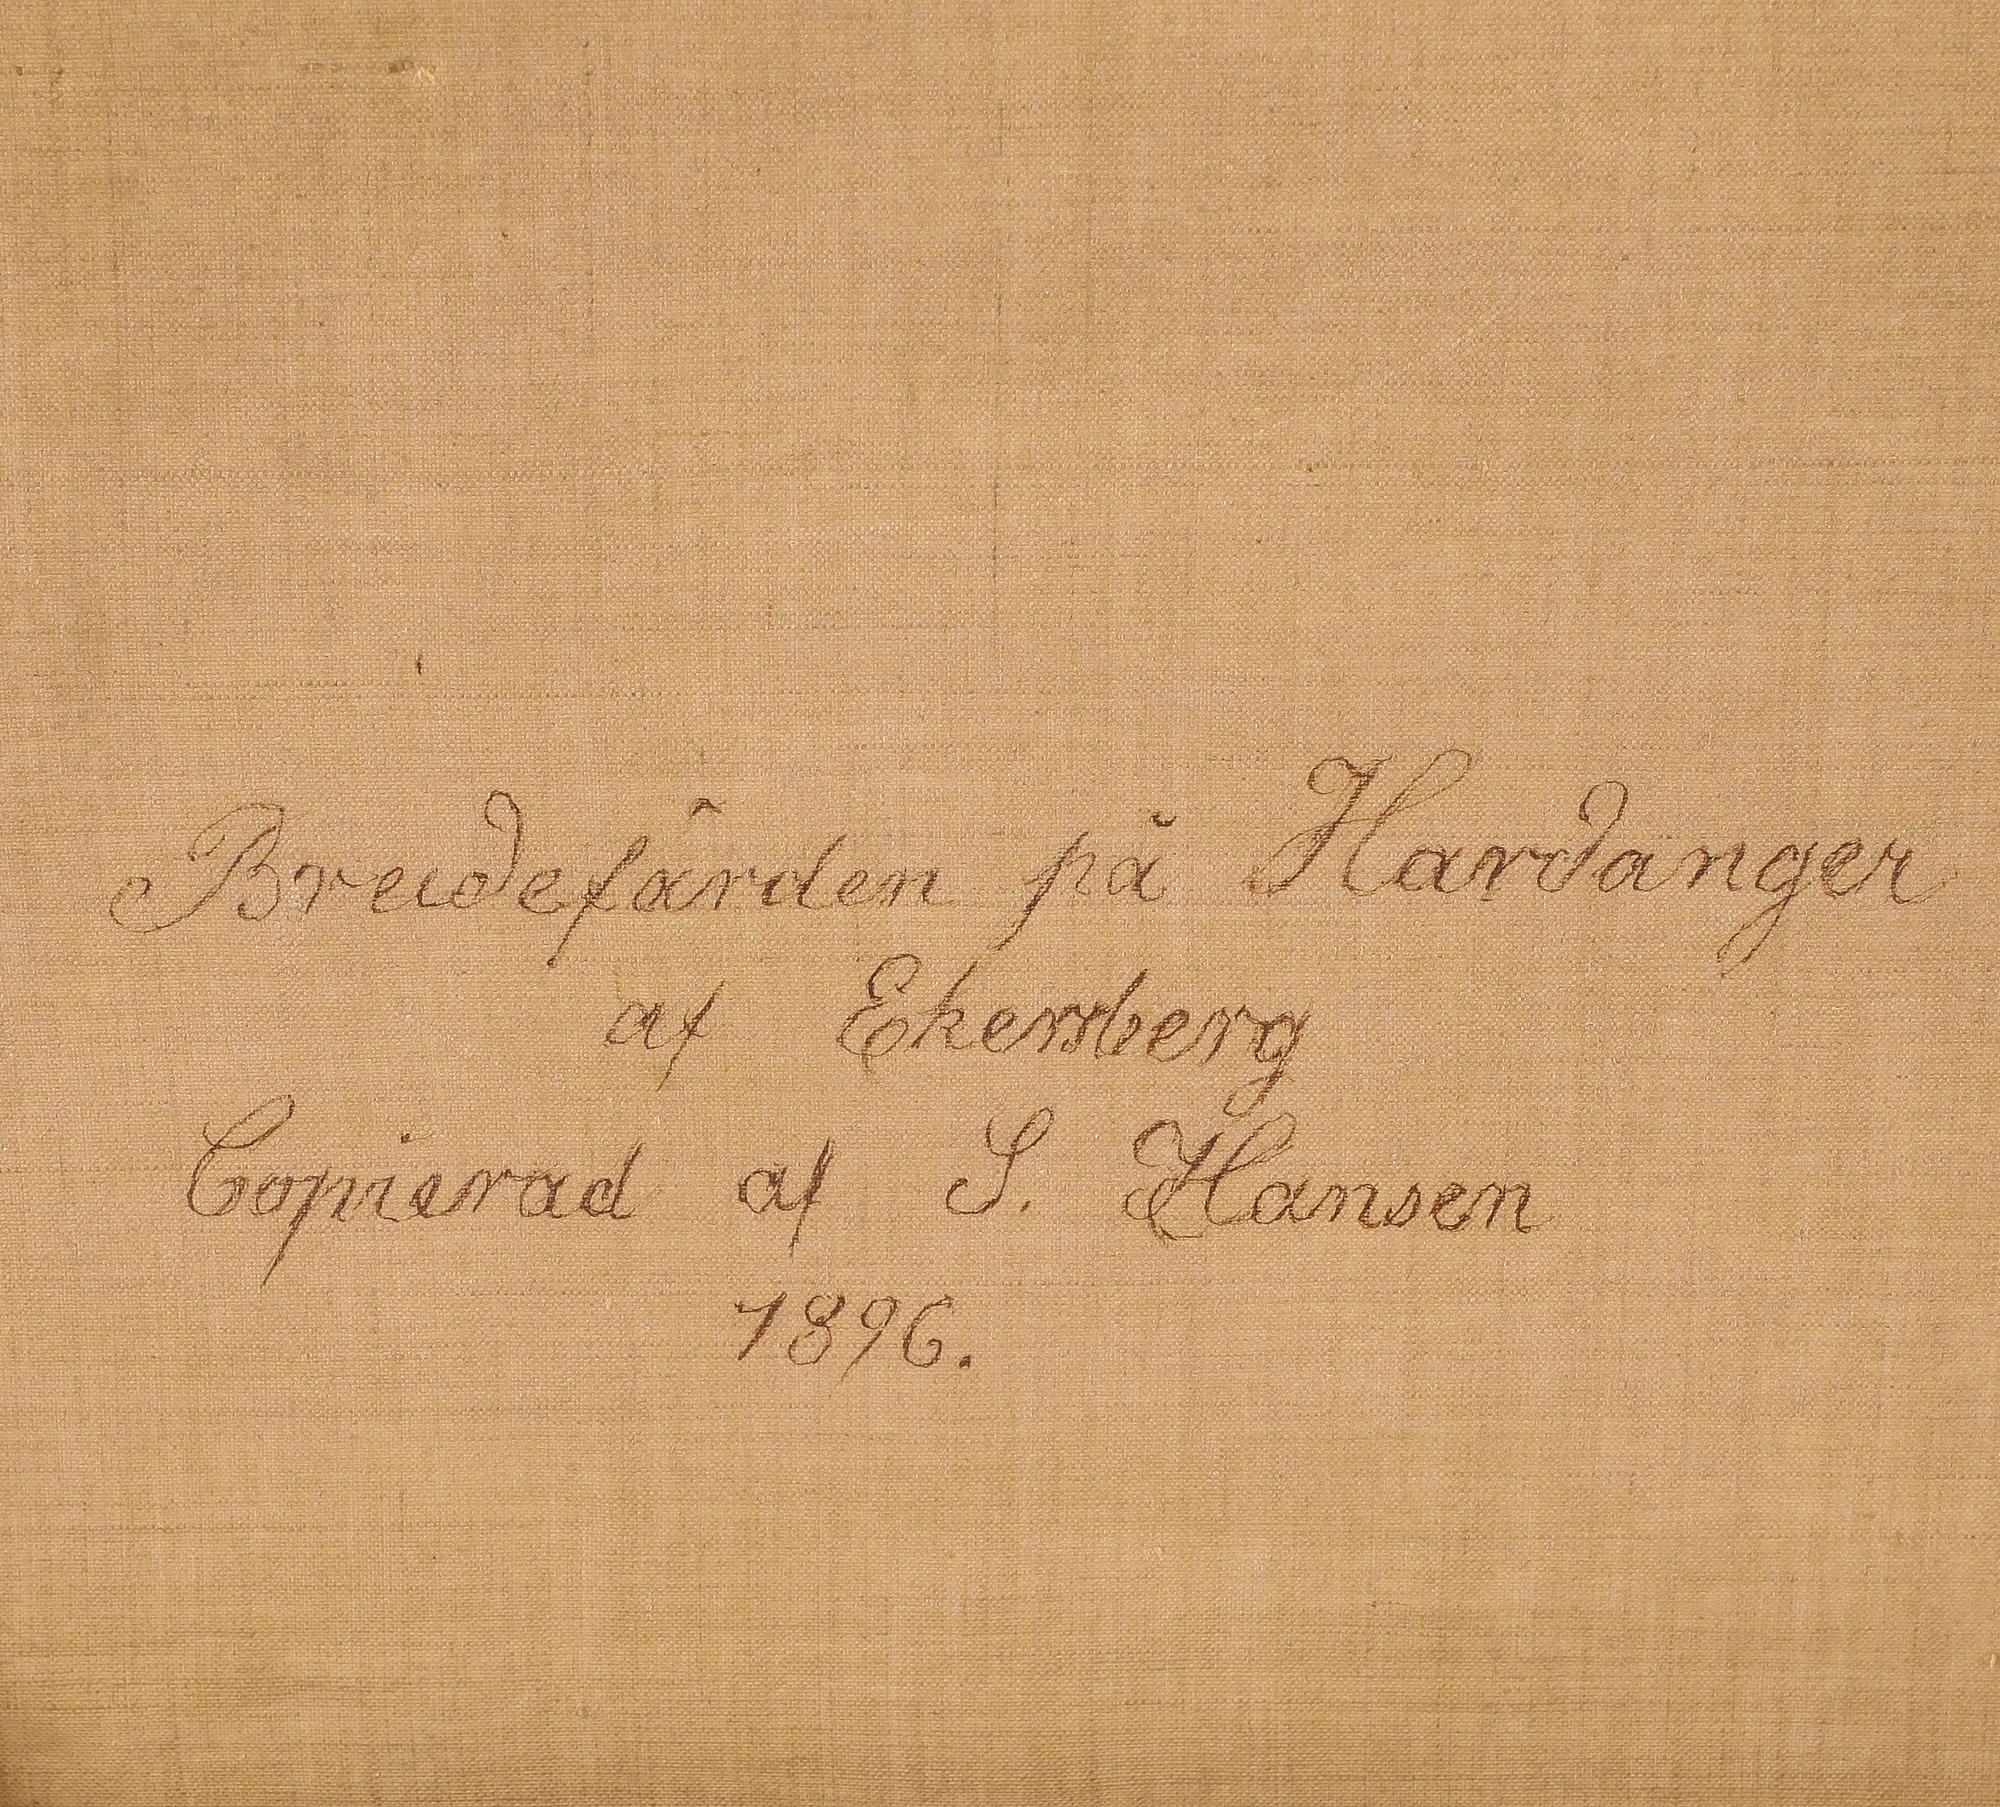 Breudefärden på Hardanger
af Ekersberg
Copierad af S. Hansen
1896.